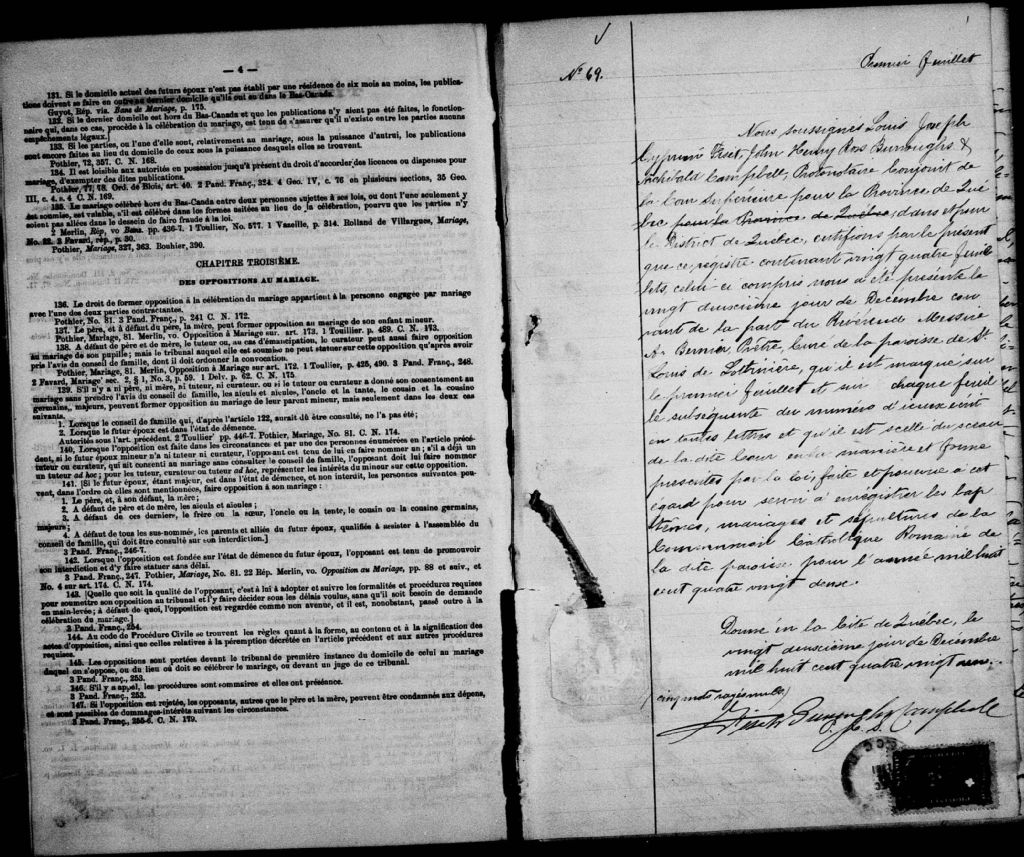 — 4 —
131. Si le domicile actuel des futurs époux n'est pas établi par une résidence de six mois au moins, les publica-
tions doivent se faire en outre au dernier domicile qu'ils ont eu dans le Bas-Canada.
Guyot, Rép. via. Bans de Mariage, p. 175.
132. Si le dernier domicile est hors du Bas-Canada et que les publications n'y aient pas été faites, le fonction-
naire qui, dans ce cas, procède à la célébration du mariage, est tenu de s'assurer qu'il n'existe entre les parties aucuns
empêchements légaux.
133. Si les parties, ou l'une d'elle sont, relativement au mariage, sous la puissance d'autrui, les publications
sont encore faites au lieu du domicile de ceux sous la puissance desquels elles se trouvent.
Pothier, 72, 357. C. N. 168.
134. Il est loisible aux autorités en possession jusqu'à présent du droit d'accorder des licences ou dispenses pour
mariage, d'exempter des dites publications.
Pothier, 77, 78. Ord. de Blois, art. 40. 2 Pand. Franç., 324. 4 Geo. IV, c. 76 en plusieurs sections, 35 Geo.
III, c. 4. s. 4 C. N. 169.
135. Le mariage célébré hors du Bas-Canda entre deux personnes sujettes à ses lois, ou dont l'une seulement y
est soumise, est valable, s'il est célébré dans les formes usitées au lieu de la célébration, pourvu que les parties n'y
soient pas allées dans le dessein de faire fraude à la loi.
2 Merlin, Rép, vo Bans. pp. 436-7. 1 Toullier, No. 577. 1 Vazeille, p. 314. Rolland de Villargues, Mariage,
No. 22. 3 Favard, rép., p. 30.
Pothier, Mariage, 327, 363. Bouhier, 390.
CHAPITRE TROISIÈME.
DES OPPOSITIONS AU MARIAGE.
136. Le droit de former opposition à la célébration du mariage appartient à la personne engagée par mariage
avec l'une des deux parties contractantes.
Pothier, No. 81. 3 Pand. Franç., p. 241 C. N. 172.
137. Le père, et à défaut du père, la mère, peut former opposition au mariage de son enfant mineur.
Pothier, Mariage, 81. Merlin, vo. Opposition à Mariage sur. art. 173. 1 Touillier. p. 489. C. N. 173.
138. A défaut de père et de mère, le tuteur ou, au cas d'émancipation, le curateur peut aussi faire opposition
au mariage de son pupille; mais le tribunal auquel elle est soumise ne peut statuer sur cette opposition qu'après avoir
pris l'avis du conseil de famille, dont il doit ordonner la convocation.
Pothier, Mariage, 81. Merlin, Opposition à Mariage sur art. 172. 1 Touillier, p. 425, 490. 3 Pand. Franç., 248.
2 Favard, Mariage' sec. 2, § 1, No. 3, p. 59. 1 Delv. p. 62. C. N. 175.
139. S'il n'y a ni père, ni mère, ni tuteur, ni curateur, ou si le tuteur ou curateur a donné son consentement au
mariage sans prendre l'avis du conseil de famille, les aïeuls et aïeules, l'oncle et la tante, le cousin et la cousine
germains, majeurs, peuvent former opposition au mariage de leur parent mineur, mais seulement dans les deux cas
suivants.
1. Lorsque le conseil de famille qui, d'après l'article 122, aurait dû être consulté, ne l'a pas été;
2. Lorsque le futur époux est dans l'état de démence.
Autorités sous l'art. précédent. 2 Toullier' pp. 446-7. Pothier, Mariage, No. 81. C. N. 174.
140. Lorsque l'opposition est faite dans les circonstances et par une des personnes énumérées en l'article précé-
dent, si le futur époux mineur n'a ni tuteur ni curateur, l'opposant est tenu de lui en faire nommer un; s'il a déjà un
tuteur ou curateur, qui ait consenti au mariage sans consulter le conseil de famille, l'opposant doit lui faire nommer
un tuteur ad hoc; pour les tuteur, curateur ou tuteur ad hoc, représenter les intérêts du mineur sur cette opposition.
141. [Si le futur époux, étant majeur, est dans l'état de démence, et non interdit, les personnes suivantes peu-
vent, dans l'ordre où elles sont mentionnées, faire opposition à son mariage:
1. Le père, et, à son défaut, la mère;
2. A défaut de père et de mère, les aïeuls et aïeules;
3. A défaut de ces derniers, le frère ou la sœur, l'oncle ou la tente, le cousin ou la cousine germains,
majeurs;
4. A défaut de tous les sus-nommés, les parents et alliés du futur époux, qualifiés à assister à l'assemblée du
conseil de famille, qui doit être consulté sur son interdiction.]
3 Pand. Franç., 246-7.
142. Lorsque l'opposition est fondée sur l'état de démence du futur époux, l'opposant est tenu de promouvoir
son interdiction et d'y faire statuer sans délai.
3 Pand. Franç., 247. Pothier, Mariage, No. 81. 22 Rép. Merlin, vo. Opposition au Mariage, pp. 88 et suiv., et
No. 4 sur art. 174. C. N. 174.
143. [Quelle que soit la qualité de l'opposant, c'est à lui à adopter et suivre les formalités et procédures requises
pour soumettre son opposition au tribunal et l'y faire décider sous les délais voulus, sans qu'il soit besoin de demande
en main-levée; à défaut de quoi, l'opposition est regardée comme non avenue, et il est, nonobstant, passé outre à la
célébration du mariage.]
3 Pand. Franç., 254.
144. Au code de Procédure Civile se trouvent les règles quant à la forme, au contenu et à la signification des
actes d'opposition, ainsi que celles relatives à la péremption décrétée en l'article précédent et aux autres procédures
requises.
145. Les oppositions sont portées devant le tribunal de première instance du domicile de celui au mariage
duquel on s'oppose, ou du lieu où doit se célébrer le mariage, ou devant un juge de ce tribunal.
3 Pand. Franç., 253.
146. S'il y a appel, les procédures sont sommaires et elles ont préséance.
3 Pand. Franç., 253.
147. Si l'opposition est rejetée, les opposants, autres que le père et la mère, peuvent être condamnés aux dépens,
et sont passibles de dommages-intérêts suivant les circonstances.
3 Pand. Franç., 255-6. C. N. 179.
No 69.
Premier feuillet
Nous soussignés Louis Joseph
Cyprien Fiset, John Henry Ross Burroughs &
Archibald Campbell, Protonotaire Conjoint de
la Cour Supérieure pour la Province de Qué
bec pour la Province de Québec, dans et pour
le District de Québec, certifions par le présent
que ce registre contenant vingt quatre feuil
lets, celui-ci compris nous a été présenté le
vingt deuxième jour de Décembre cou
rant de la part du Révérend Messire
A. Bernier Prêtre, Curé de la paroisse de St.
Louis de Lotbinière, qu'il est marqué sur
le premier feuillet et sur chaque feuil
let subséquente du numéro d'iceux écrit
en toutes lettres et qu'il est scellé du sceau
de la dite Cour en la manière et forme
prescrites par la loi, fait et pourvu à cet
égard pour servir à enregistrer les bap
têmes, mariages et sépultures de la
Communion Catholique Romaine de
la dite paroisse pour l'année mil huit
cent quatre vingt deux.
Donné en la Cité de Québec, le
vingt deuxième jour de Décembre
mil huit cent quatre vingt un.
cinq mots rayés nuls)
Fiset Burroughs Campbell
P. C. S.